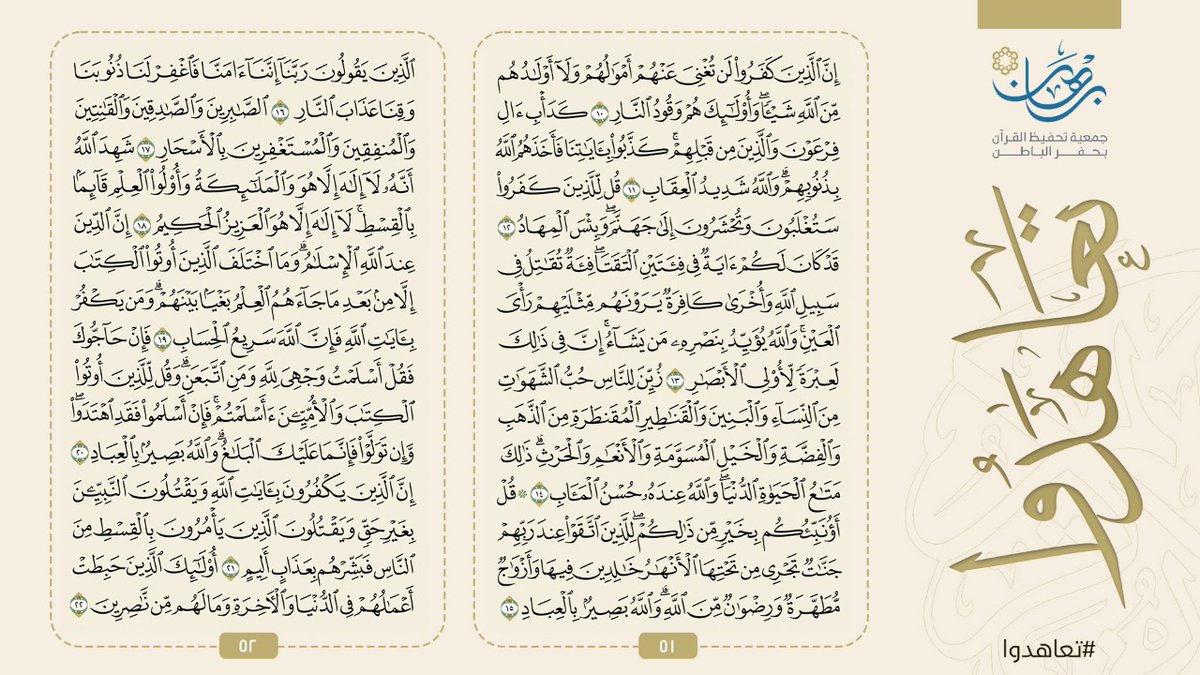 برهان
جمعية تحفيظ القرآن
بحفر الباطن
تعاهدوا
#تعاهدوا
إِنَّ الَّذِينَ كَفَرُوا۟ لَن تُغْنِىَ عَنْهُمْ أَمْوَٰلُهُمْ وَلَآ أَوْلَٰدُهُم
مِّنَ اللَّهِ شَيْـًٔا ۖ وَأُو۟لَٰٓئِكَ هُمْ وَقُودُ النَّارِ ١٠ كَدَأْبِ ءَالِ
فِرْعَوْنَ وَالَّذِينَ مِن قَبْلِهِمْ ۚ كَذَّبُوا۟ بِـَٔايَٰتِنَا فَأَخَذَهُمُ اللَّهُ
بِذُنُوبِهِمْ ۗ وَاللَّهُ شَدِيدُ الْعِقَابِ ١١ قُل لِّلَّذِينَ كَفَرُوا۟
سَتُغْلَبُونَ وَتُحْشَرُونَ إِلَىٰ جَهَنَّمَ ۚ وَبِئْسَ الْمِهَادُ ١٢
قَدْ كَانَ لَكُمْ ءَايَةٌ فِى فِئَتَيْنِ الْتَقَتَا ۖ فِئَةٌ تُقَٰتِلُ فِى
سَبِيلِ اللَّهِ وَأُخْرَىٰ كَافِرَةٌ يَرَوْنَهُم مِّثْلَيْهِمْ رَأْىَ
الْعَيْنِ ۚ وَاللَّهُ يُؤَيِّدُ بِنَصْرِهِۦ مَن يَشَآءُ ۗ إِنَّ فِى ذَٰلِكَ
لَعِبْرَةً لِّأُو۟لِى الْأَبْصَٰرِ ١٣ زُيِّنَ لِلنَّاسِ حُبُّ الشَّهَوَٰتِ
مِنَ النِّسَآءِ وَالْبَنِينَ وَالْقَنَٰطِيرِ الْمُقَنطَرَةِ مِنَ الذَّهَبِ
وَالْفِضَّةِ وَالْخَيْلِ الْمُسَوَّمَةِ وَالْأَنْعَٰمِ وَالْحَرْثِ ۗ ذَٰلِكَ
مَتَٰعُ الْحَيَوٰةِ الدُّنْيَا ۖ وَاللَّهُ عِندَهُۥ حُسْنُ الْمَـَٔابِ ١٤ ۞ قُلْ
أَؤُنَبِّئُكُم بِخَيْرٍ مِّن ذَٰلِكُمْ ۚ لِلَّذِينَ اتَّقَوْا۟ عِندَ رَبِّهِمْ
جَنَّٰتٌ تَجْرِى مِن تَحْتِهَا الْأَنْهَٰرُ خَٰلِدِينَ فِيهَا وَأَزْوَٰجٌ
مُّطَهَّرَةٌ وَرِضْوَٰنٌ مِّنَ اللَّهِ ۗ وَاللَّهُ بَصِيرٌۢ بِالْعِبَادِ ١٥
٥١
الَّذِينَ يَقُولُونَ رَبَّنَآ إِنَّنَآ ءَامَنَّا فَاغْفِرْ لَنَا ذُنُوبَنَا
وَقِنَا عَذَابَ النَّارِ ١٦ الصَّٰبِرِينَ وَالصَّٰدِقِينَ وَالْقَٰنِتِينَ
وَالْمُنفِقِينَ وَالْمُسْتَغْفِرِينَ بِالْأَسْحَارِ ١٧ شَهِدَ اللَّهُ
أَنَّهُۥ لَآ إِلَٰهَ إِلَّا هُوَ وَالْمَلَٰٓئِكَةُ وَأُو۟لُوا۟ الْعِلْمِ قَآئِمًۢا
بِالْقِسْطِ ۚ لَآ إِلَٰهَ إِلَّا هُوَ الْعَزِيزُ الْحَكِيمُ ١٨ إِنَّ الدِّينَ
عِندَ اللَّهِ الْإِسْلَٰمُ ۗ وَمَا اخْتَلَفَ الَّذِينَ أُوتُوا۟ الْكِتَٰبَ
إِلَّا مِنۢ بَعْدِ مَا جَآءَهُمُ الْعِلْمُ بَغْيًۢا بَيْنَهُمْ ۗ وَمَن يَكْفُرْ
بِـَٔايَٰتِ اللَّهِ فَإِنَّ اللَّهَ سَرِيعُ الْحِسَابِ ١٩ فَإِنْ حَآجُّوكَ
فَقُلْ أَسْلَمْتُ وَجْهِىَ لِلَّهِ وَمَنِ اتَّبَعَنِ ۗ وَقُل لِّلَّذِينَ أُوتُوا۟
الْكِتَٰبَ وَالْأُمِّيِّۦنَ ءَأَسْلَمْتُمْ ۚ فَإِنْ أَسْلَمُوا۟ فَقَدِ اهْتَدَوا۟ ۖ
وَّإِن تَوَلَّوْا۟ فَإِنَّمَا عَلَيْكَ الْبَلَٰغُ ۗ وَاللَّهُ بَصِيرٌۢ بِالْعِبَادِ ٢٠
إِنَّ الَّذِينَ يَكْفُرُونَ بِـَٔايَٰتِ اللَّهِ وَيَقْتُلُونَ النَّبِيِّۦنَ
بِغَيْرِ حَقٍّ وَيَقْتُلُونَ الَّذِينَ يَأْمُرُونَ بِالْقِسْطِ مِنَ
النَّاسِ فَبَشِّرْهُم بِعَذَابٍ أَلِيمٍ ٢١ أُو۟لَٰٓئِكَ الَّذِينَ حَبِطَتْ
أَعْمَٰلُهُمْ فِى الدُّنْيَا وَالْـَٔاخِرَةِ وَمَا لَهُم مِّن نَّٰصِرِينَ ٢٢
٥٢